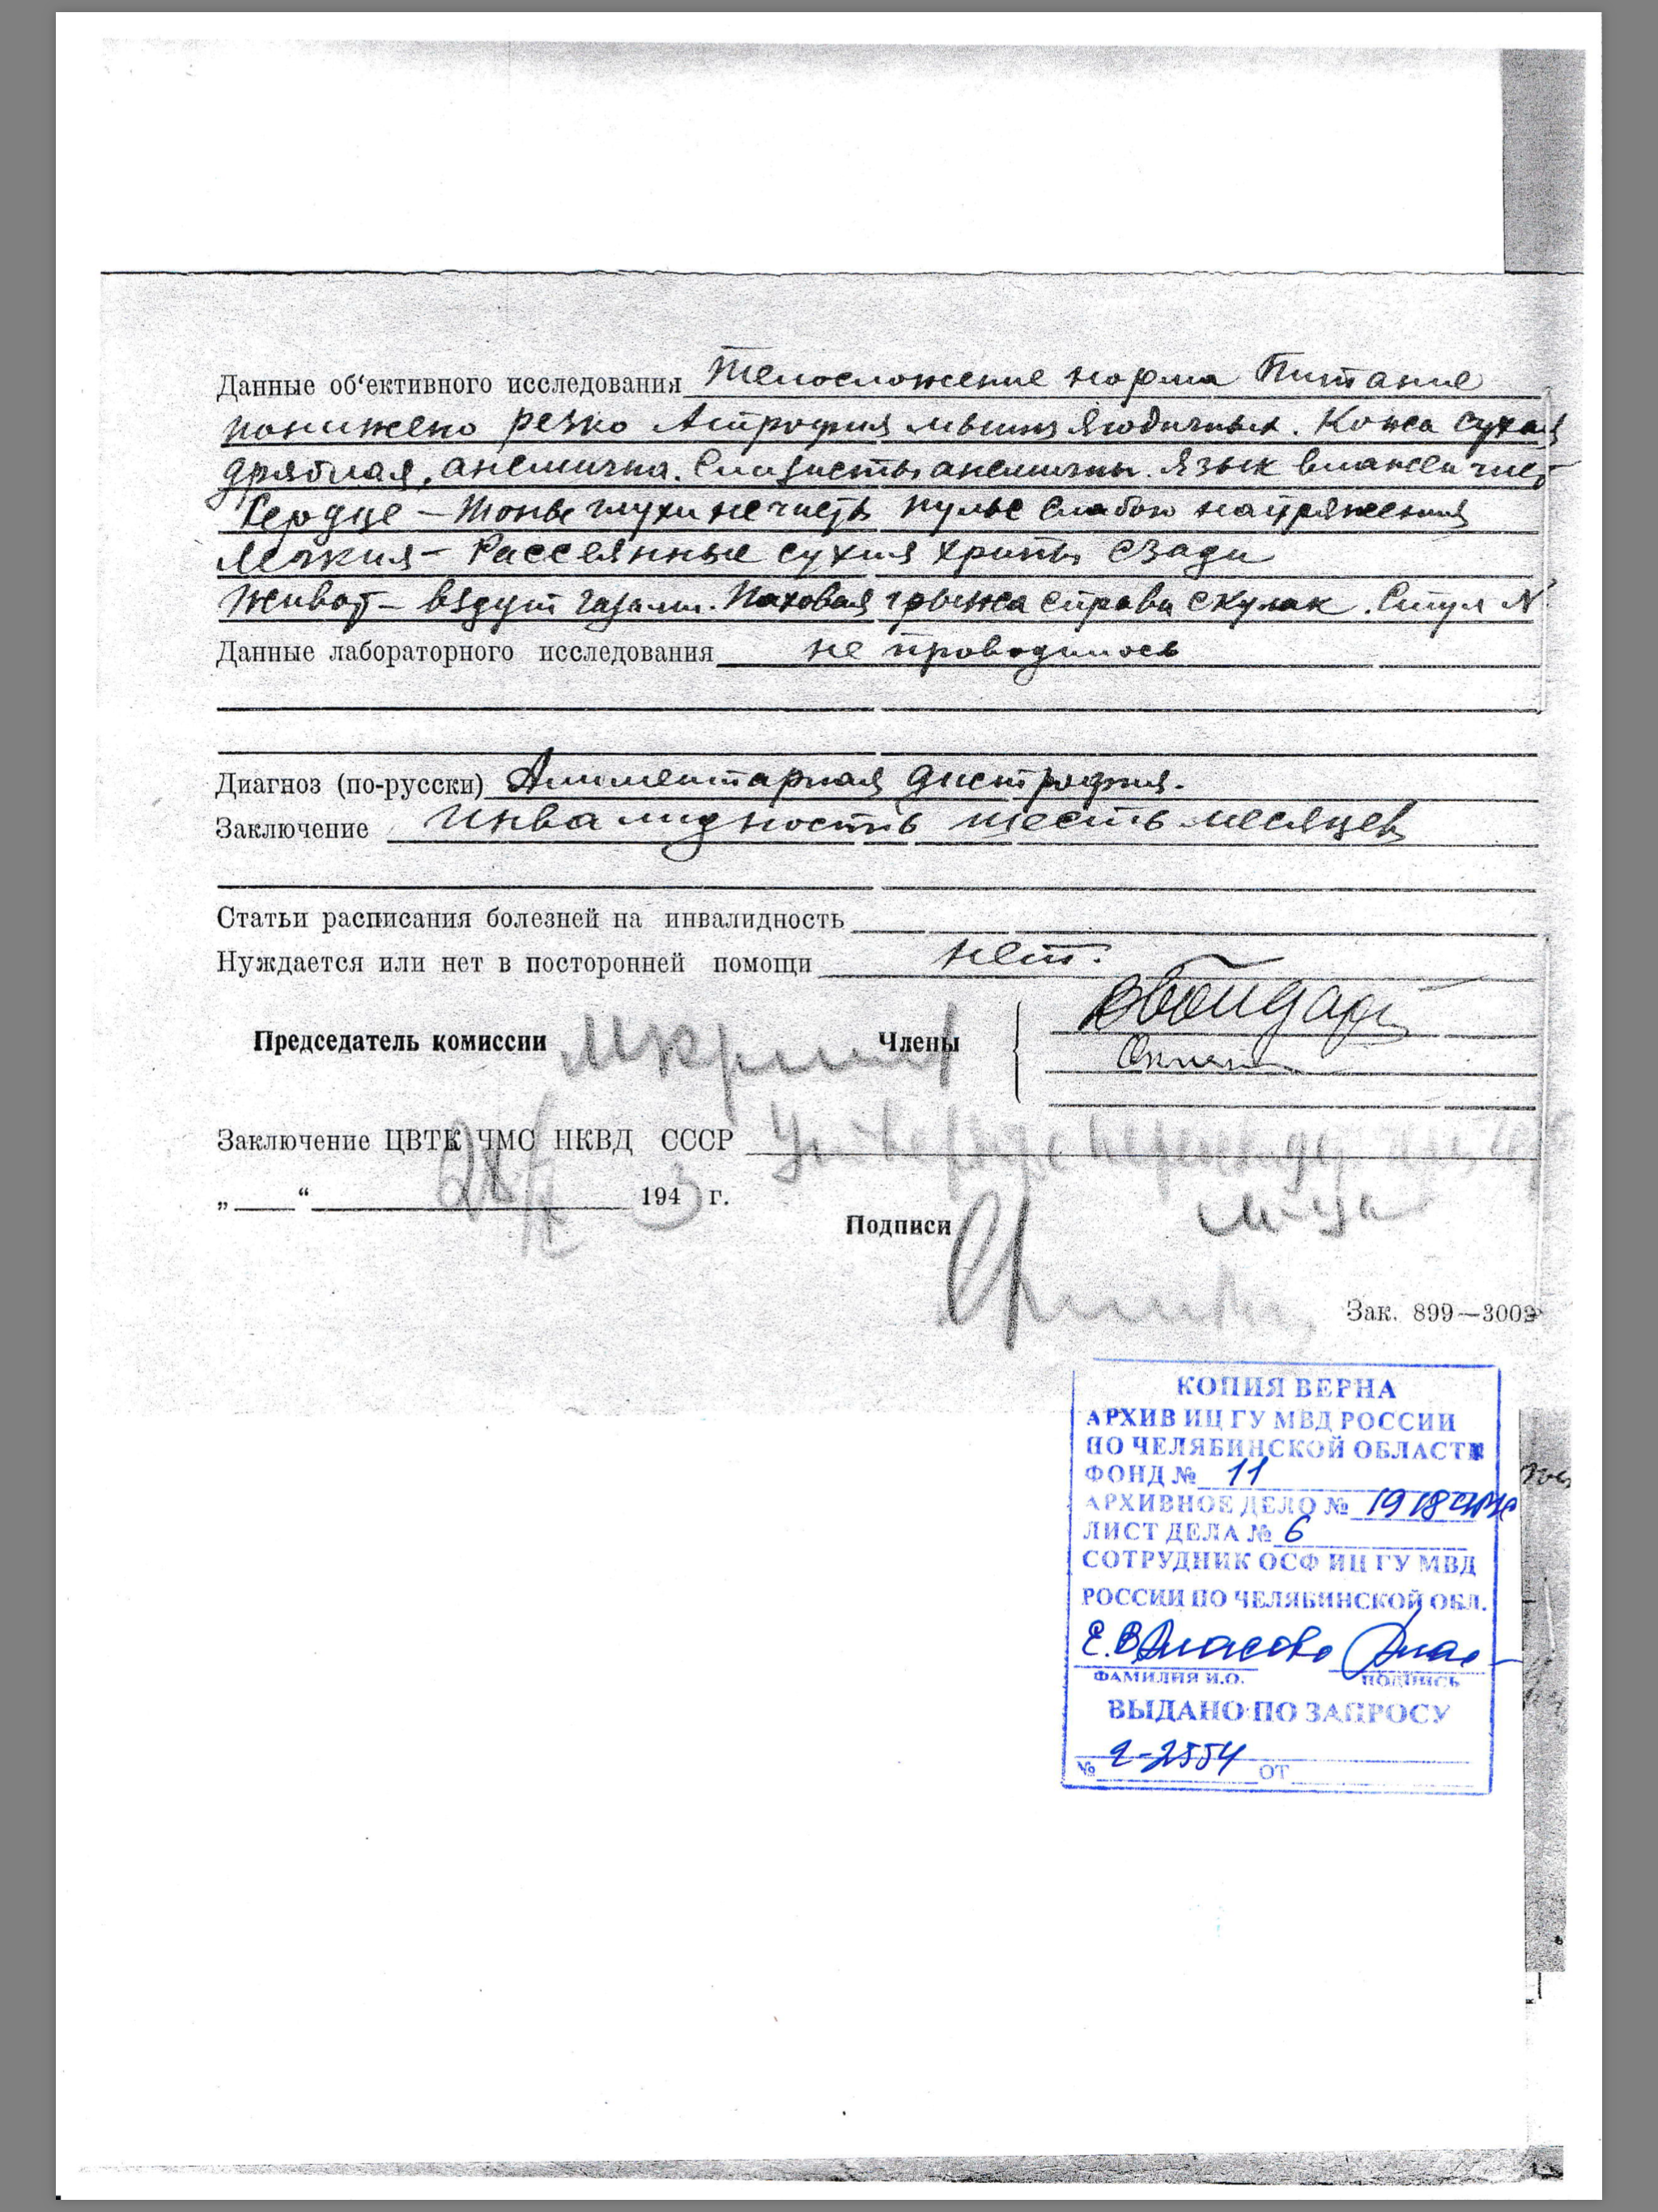 Данные об'ективного исследования Телосложение норма Питание
понижено резко Атрофия мышц ягодичных. Кожа сухая
дряблая, анемична. Слизисты анемичны. Язык влажен чист
Сердце – Тоны глухи нечисты Пульс слабого напряжения
Легкия – Рассеянные сухия хрипы сзади
Живот – вздут газами. Паховая грыжа справа с кулак. Стул N
Данные лабораторного исследования не проводилось
Диагноз (по-русски) Алиментарная дистрофия.
Заключение Инвалидность шесть месяцев
Статьи расписания болезней на инвалидность
Нуждается или нет в посторонней помощи нет.
Председатель комиссии Члены
Заключение ЦВТК ЧМС НКВД СССР
„ “ 194 3 г.
Подписи
Зак. 899—3000
КОПИЯ ВЕРНА
АРХИВ ИЦ ГУ МВД РОССИИ
ПО ЧЕЛЯБИНСКОЙ ОБЛАСТИ
ФОНД № 11
АРХИВНОЕ ДЕЛО № 1918
ЛИСТ ДЕЛА № 6
СОТРУДНИК ОСФ ИЦ ГУ МВД
РОССИИ ПО ЧЕЛЯБИНСКОЙ ОБЛ.
Е.В. Власова
ФАМИЛИЯ И.О. ПОДПИСЬ
ВЫДАНО ПО ЗАПРОСУ
№ 2-2554 ОТ